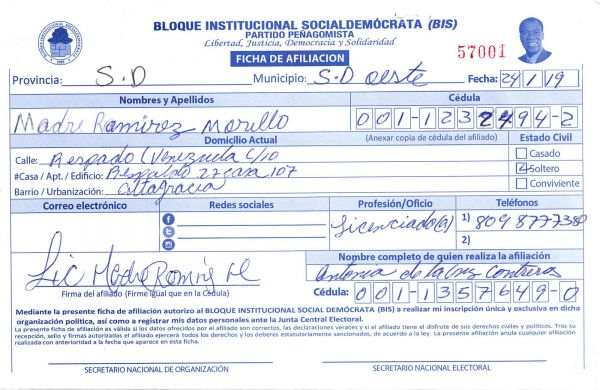 BLOQUE INSTITUCIONAL SOCIALDEMÓCRATA (BIS)
PARTIDO PEÑAGOMISTA
Libertad, Justicia, Democracia y Solidaridad
FICHA DE AFILIACION
57001
Provincia: S.D Municipio: S.D oeste Fecha: 24/1/19
Nombres y Apellidos Cédula
Madre Ramirez Morillo 001-1232494-2
Domicilio Actual (Anexar copia de cédula del afiliado) Estado Civil
Calle: Respado (Venezuela C/10 Casado
#Casa / Apt. / Edificio: Respaldo 27 casa 107 Soltero
Barrio / Urbanización: Altagracia Conviviente
Correo electrónico Redes sociales Profesión/Oficio Teléfonos
Licenciado(a) 1) 809 8777380
2)
Nombre completo de quien realiza la afiliación
Lic Antonia de la Cruz Contreras
Firma del afiliado (Firme igual que en la Cédula) Cédula: 001-1357649-0
Mediante la presente ficha de afiliación autorizo al BLOQUE INSTITUCIONAL SOCIAL DEMÓCRATA (BIS) a realizar mi inscripción única y exclusiva en dicha
organización política, así como a registrar mis datos personales ante la Junta Central Electoral.
La presente ficha de afiliación es válida si los datos ofrecidos por el afiliado son correctos, las declaraciones veraces y si el afiliado tiene el disfrute de sus derechos civiles y políticos. Tras su
recepción, sello y firmas autorizadas el afiliado ejercerá todos los derechos y los deberes estatutariamente sancionados, de acuerdo a la ley. La presente afiliación anula cualquier afiliación
realizada con anterioridad a la fecha que aparece en esta ficha.
SECRETARIO NACIONAL DE ORGANIZACIÓN SECRETARIO NACIONAL ELECTORAL